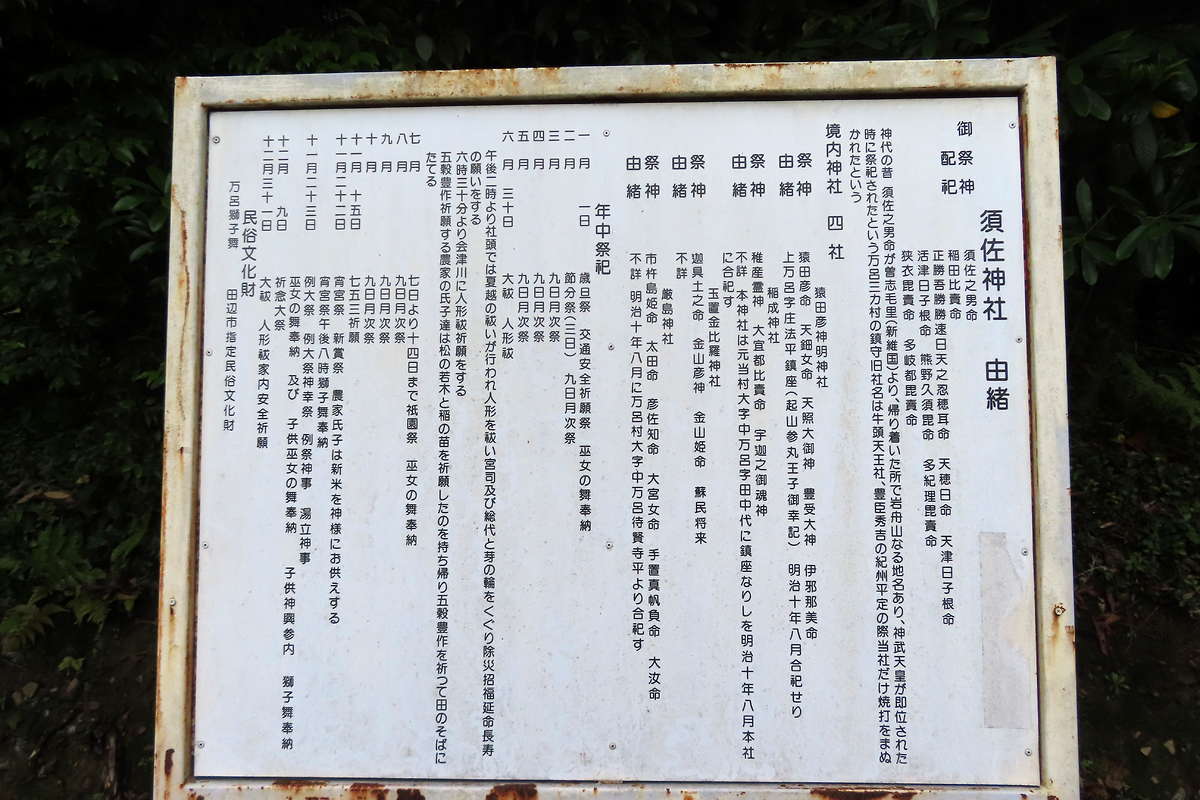 須佐神社　由緒
御祭神　須佐之男命
配祀　稲田比賣命
正勝吾勝勝速日天之忍穂耳命　天穂日命　天津日子根命
活津日子根命　熊野久須毘命　多紀理毘賣命
狭衣毘賣命　多岐都毘賣命
神代の昔　須佐之男命が曽志毛里(新維国)より、帰り着いた所で岩舟山なる地名あり、神武天皇が即位された
時に祭祀されたという万呂三カ村の鎮守旧社名は牛頭天王社、豊臣秀吉の紀州平定の際当社だけ焼打をまぬ
かれたという
境内神社　四社
猿田彦神明神社
祭神　猿田彦命　天鈿女命　天照大御神　豊受大神　伊邪那美命
由緒　上万呂字庄法平鎮座(起山参丸王子御幸記)　明治十年八月合祀せり
稲成神社
祭神　稚産霊神　大宜都比賣命　宇迦之御魂神
由緒　不詳　本神社は元当村大字中万呂字田中代に鎮座なりしを明治十年八月本社
に合祀す
玉置金比羅神社
祭神　迦具土之命　金山彦神　金山姫命　蘇民将来
由緒　不詳
厳島神社
祭神　市杵島姫命　太田命　彦佐知命　大宮女命　手置真帆負命　大汝命
由緒　不詳　明治十年八月に万呂村大字中万呂待賢寺平より合祀す
年中祭祀
一月　一日　歳旦祭　交通安全祈願祭　巫女の舞奉納
二月　節分祭(三日)　九日月次祭
三月　九日月次祭
四月　九日月次祭
五月　九日月次祭
六月　三十日　大祓　人形祓
午後二時より社頭では夏越の祓いが行われ人形を祓い宮司及び総代と芽の輪をくぐり除災招福延命長寿
の願いをする
六時三十分より会津川に人形祓祈願をする
五穀豊作祈願する農家の氏子達は松の若木と稲の苗を祈願したのを持ち帰り五穀豊作を祈つて田のそばに
たてる
七月　七日より十四日まで祇園祭　巫女の舞奉納
八月　九日月次祭
九月　九日月次祭
十月　九日月次祭
十一月　十五日　七五三祈願
十一月二十二日　宵宮祭　新嘗祭　農家氏子は新米を神様にお供えする
宵宮祭午後八時獅子舞奉納
十一月二十三日　例大祭　例大祭神幸祭　例祭神事　湯立神事
巫女の舞奉納　及び　子供巫女の舞奉納　子供神輿参内　獅子舞奉納
十二月　九日　祈念大祭
十二月三十一日　大祓　人形祓家内安全祈願
民俗文化財
万呂獅子舞　田辺市指定民俗文化財